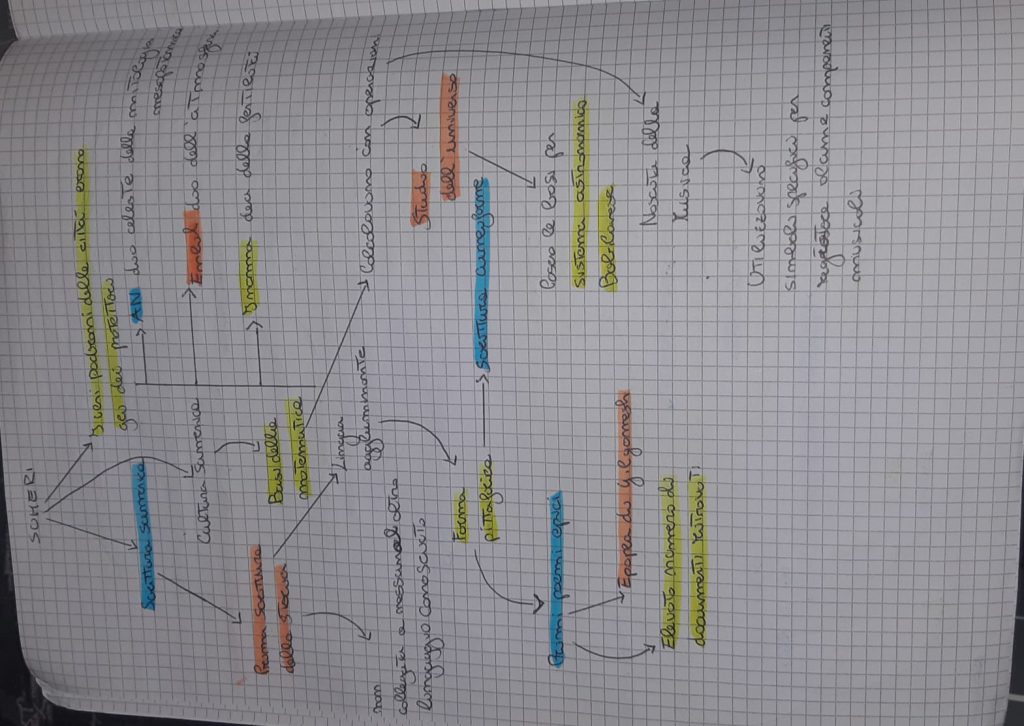 SUMERI
Divini padroni delle città erano
gli dei protettori
AN dio celeste della mitologia
mesopotamica
Enlil dio dell'atmosfera
Inanna dea della fertilità
Scrittura sumerica
Cultura Sumerica
Basi della
matematica
Calcolavano con operazioni
Studio
dell'universo
Pose le basi per
sistema astronomico
Babilonese
Nascita della
Musica
Utilizzavano
simboli specifici per
alcune componenti
musicali
Prima scrittura
della storia
non
collegata a nessun altro
linguaggio conosciuto
Lingua
agglutinante
Forma
pittografica
Scrittura cuneiforme
Primi poemi epici
Epopea di Gilgamesh
Elevato numero di
documenti ritrovati